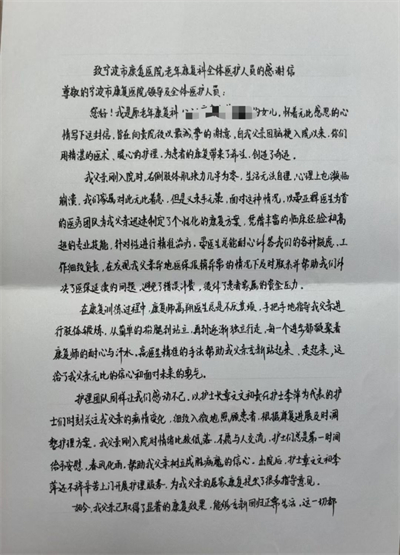 致宁波市康复医院老年康复科全体医护人员的感谢信
尊敬的宁波市康复医院领导及全体医护人员：
您好！我是原老年康复科 的女儿，怀着无比感恩的心
情写下这封信，旨在向贵院致以最诚挚的谢意，自我父亲因脑梗入院以来，你们
用精湛的医术、暖心的护理，为患者的康复带来了希望，创造了奇迹。
我父亲刚入院时，右侧肢体肌张力几乎为零，生活无法自理，心理上也濒临
崩溃，我们家属对此无比焦急，但是父亲手足无 ，面对这种情况，以 医生为首
的医疗团队为我父亲迅速制定了个性化的康复方案，凭借丰富的临床经验和高
超的专业技能，针对性进行精准治疗，医生总能耐心纠答我们的各种疑虑，工
作细致负责，在发现我父亲异地医保报销等的情况下及时联系并帮助我们解
决了医保延续的问题，避免了错误计费，缓解了患者家属的资金压力。
在康复训练过程中，康复师高翔医生总是不厌其烦，手把手地指导我父亲进
行肢体锻炼，从简单的抬腿到站立，再到逐渐独立行走，每一个进步都凝聚着
康复师的耐心与汗水，高医生精准的手法帮助我父亲重新站起来、走起来，这
给了我父亲无比的信心和面对未来的勇气。
护理团队同样让我们感动不已，以护士长章文文和责任护士李萍为代表的护
士们时刻关注我父亲的病情变化，细致入微地照顾患者，根据康复进展及时调
整护理方案，我父亲刚入院时情绪比较低落，不愿与人交流，护士们总是第一时间
给予安慰，春风化雨，帮助我父亲树立战胜病魔的信心。出院后，护士章文文和李
萍还不辞辛苦上门开展护理服务，为我父亲的居家康复提出了很多指导意见。
如今，我父亲已取得了显著的康复效果，能够重新回归正常生活，这一切都